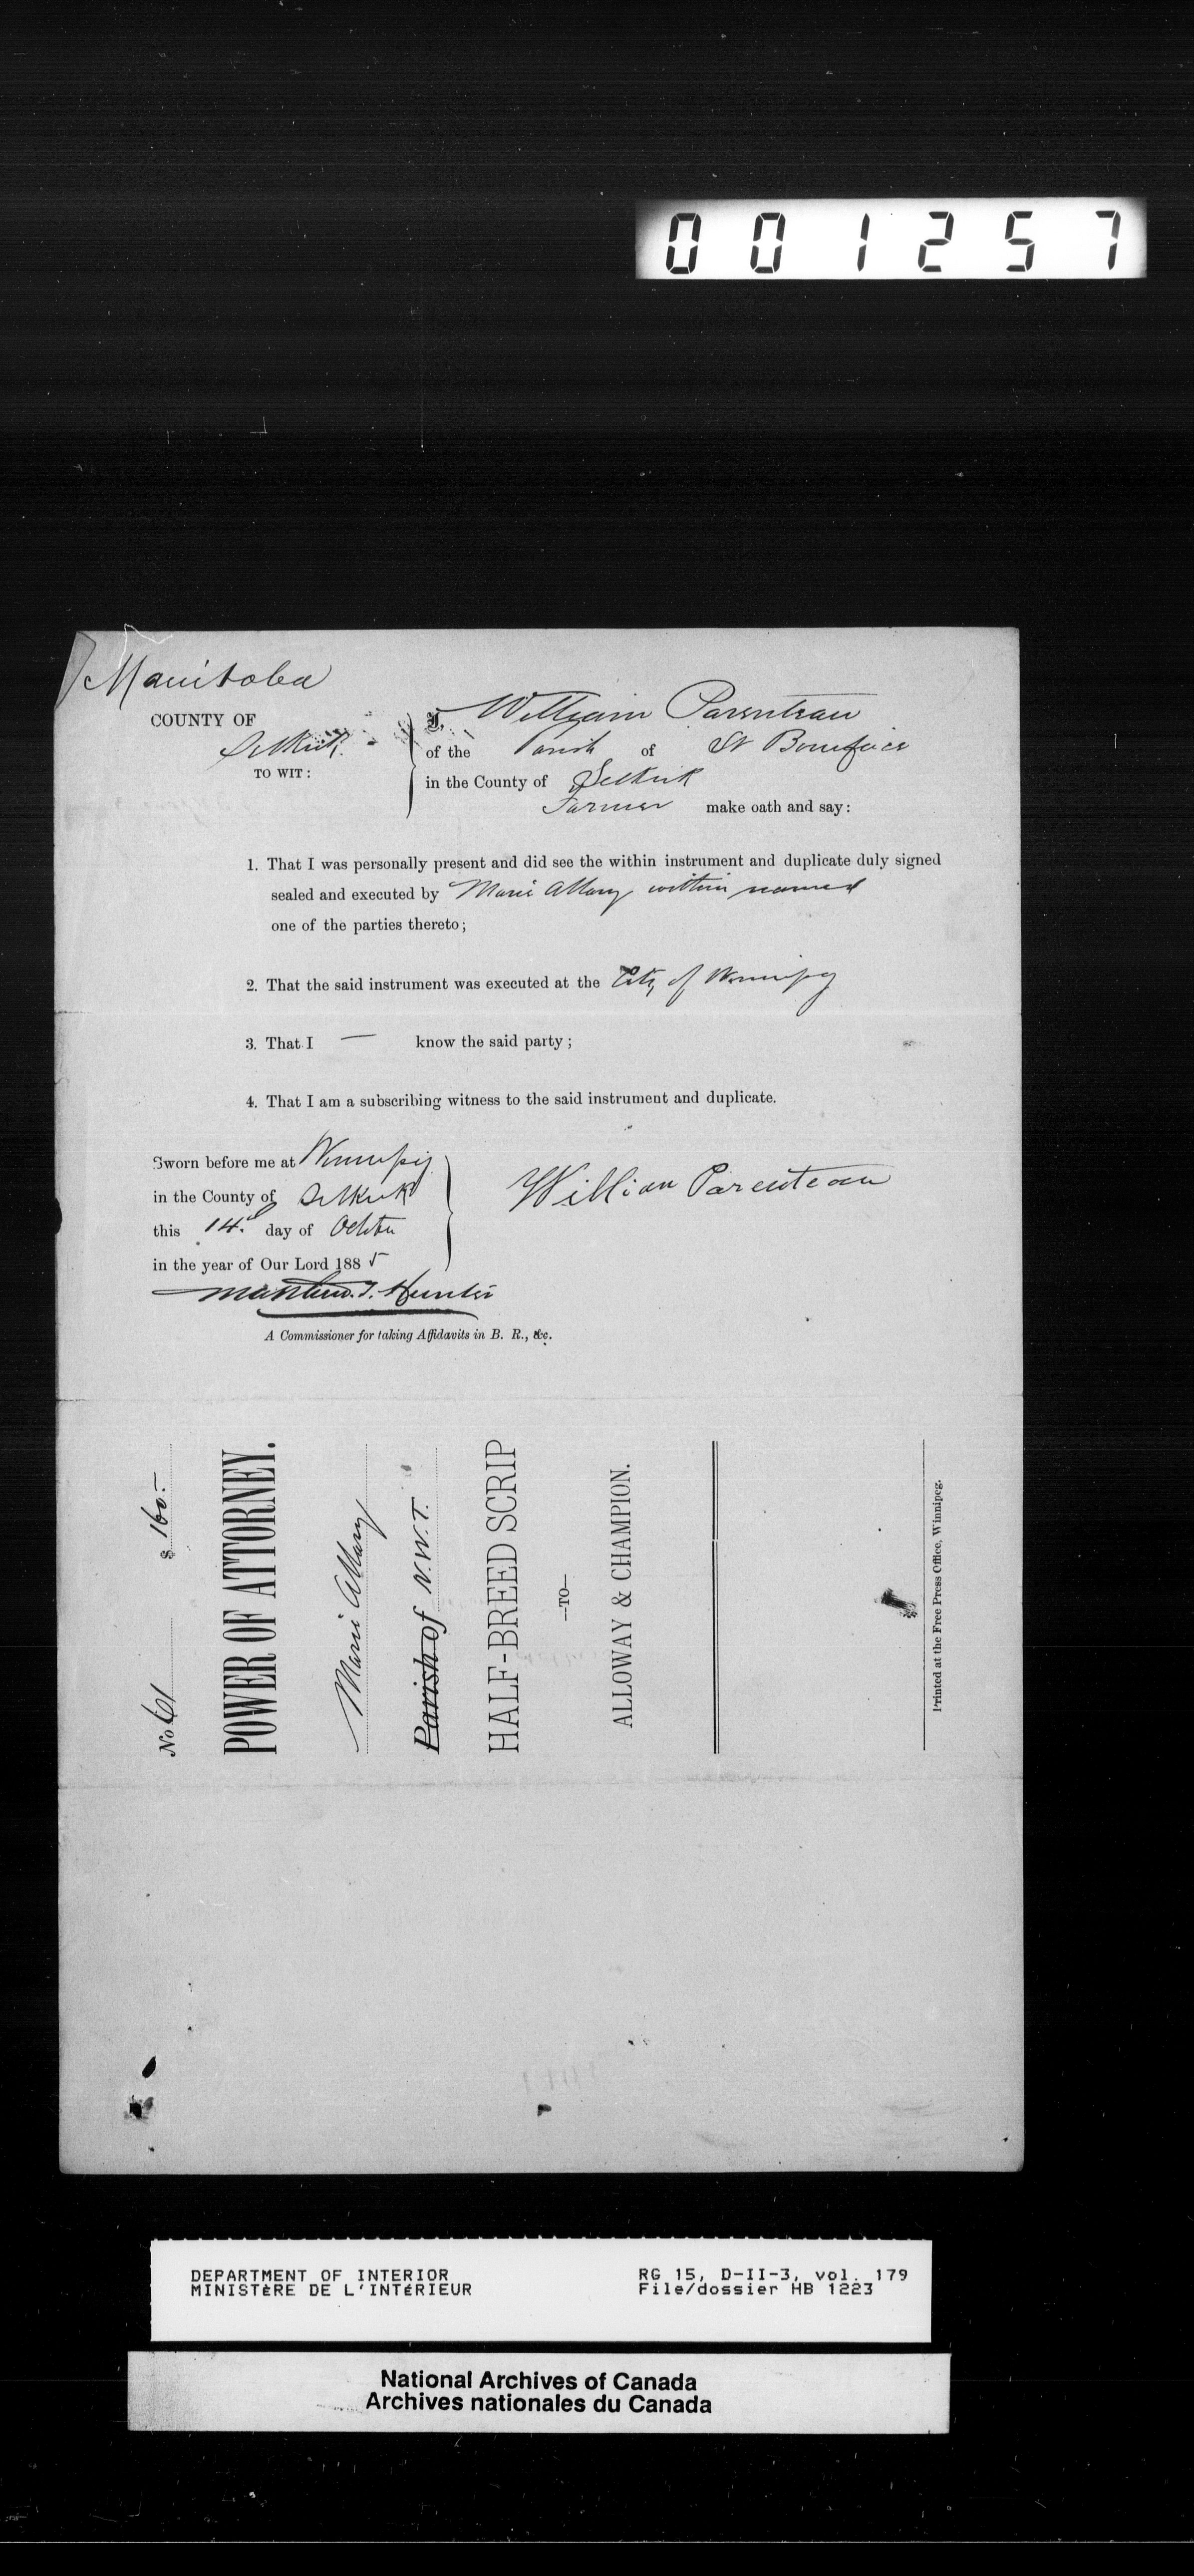 001257
Manitoba
COUNTY OF
Selkirk
TO WIT:
I, William Parenteau
of the Parish of St Boniface
in the County of Selkirk
Farmer make oath and say:
1. That I was personally present and did see the within instrument and duplicate duly signed
sealed and executed by Marie Allary within named
one of the parties thereto;
2. That the said instrument was executed at the City of Winnipeg
3. That I — know the said party;
4. That I am a subscribing witness to the said instrument and duplicate.
Sworn before me at Winnipeg
in the County of Selkirk
this 14th day of October
in the year of Our Lord 1885
William Parenteau
Matthew. I. Hunter
A Commissioner for taking Affidavits in B. R., &c.
No 61 $ 160.-
POWER OF ATTORNEY.
Marie Allary
Parish of N.W.T.
HALF-BREED SCRIP
—TO—
ALLOWAY & CHAMPION.
Printed at the Free Press Office, Winnipeg.
DEPARTMENT OF INTERIOR
MINISTÈRE DE L'INTÉRIEUR
RG 15, D-II-3, vol. 179
File/dossier HB 1223
National Archives of Canada
Archives nationales du Canada